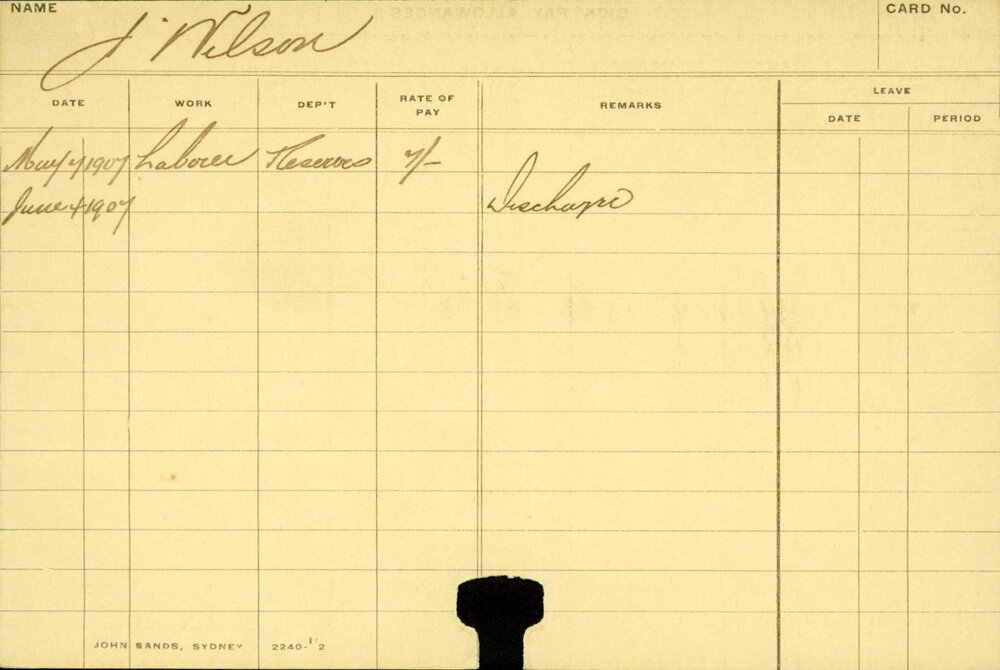 NAME
CARD No.
J Wilson
DATE WORK DEP'T RATE OF PAY REMARKS LEAVE
DATE PERIOD
May 7 1907 Laborer Reserves 7/-
June 4 1907 Discharge
JOHN SANDS, SYDNEY 2240-1'2